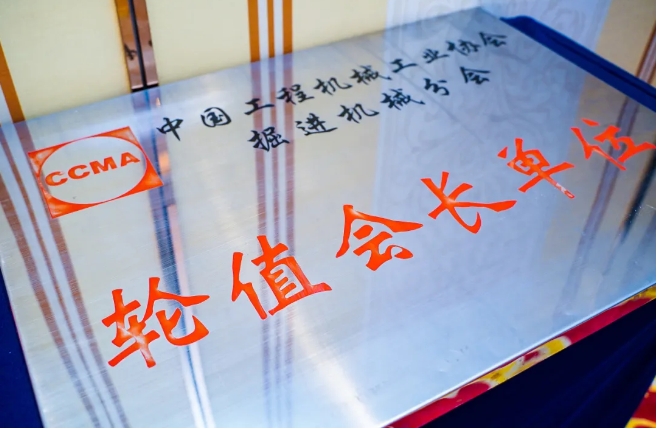 CCMA
中国工程机械工业协会
掘进机械分会
轮值会长单位